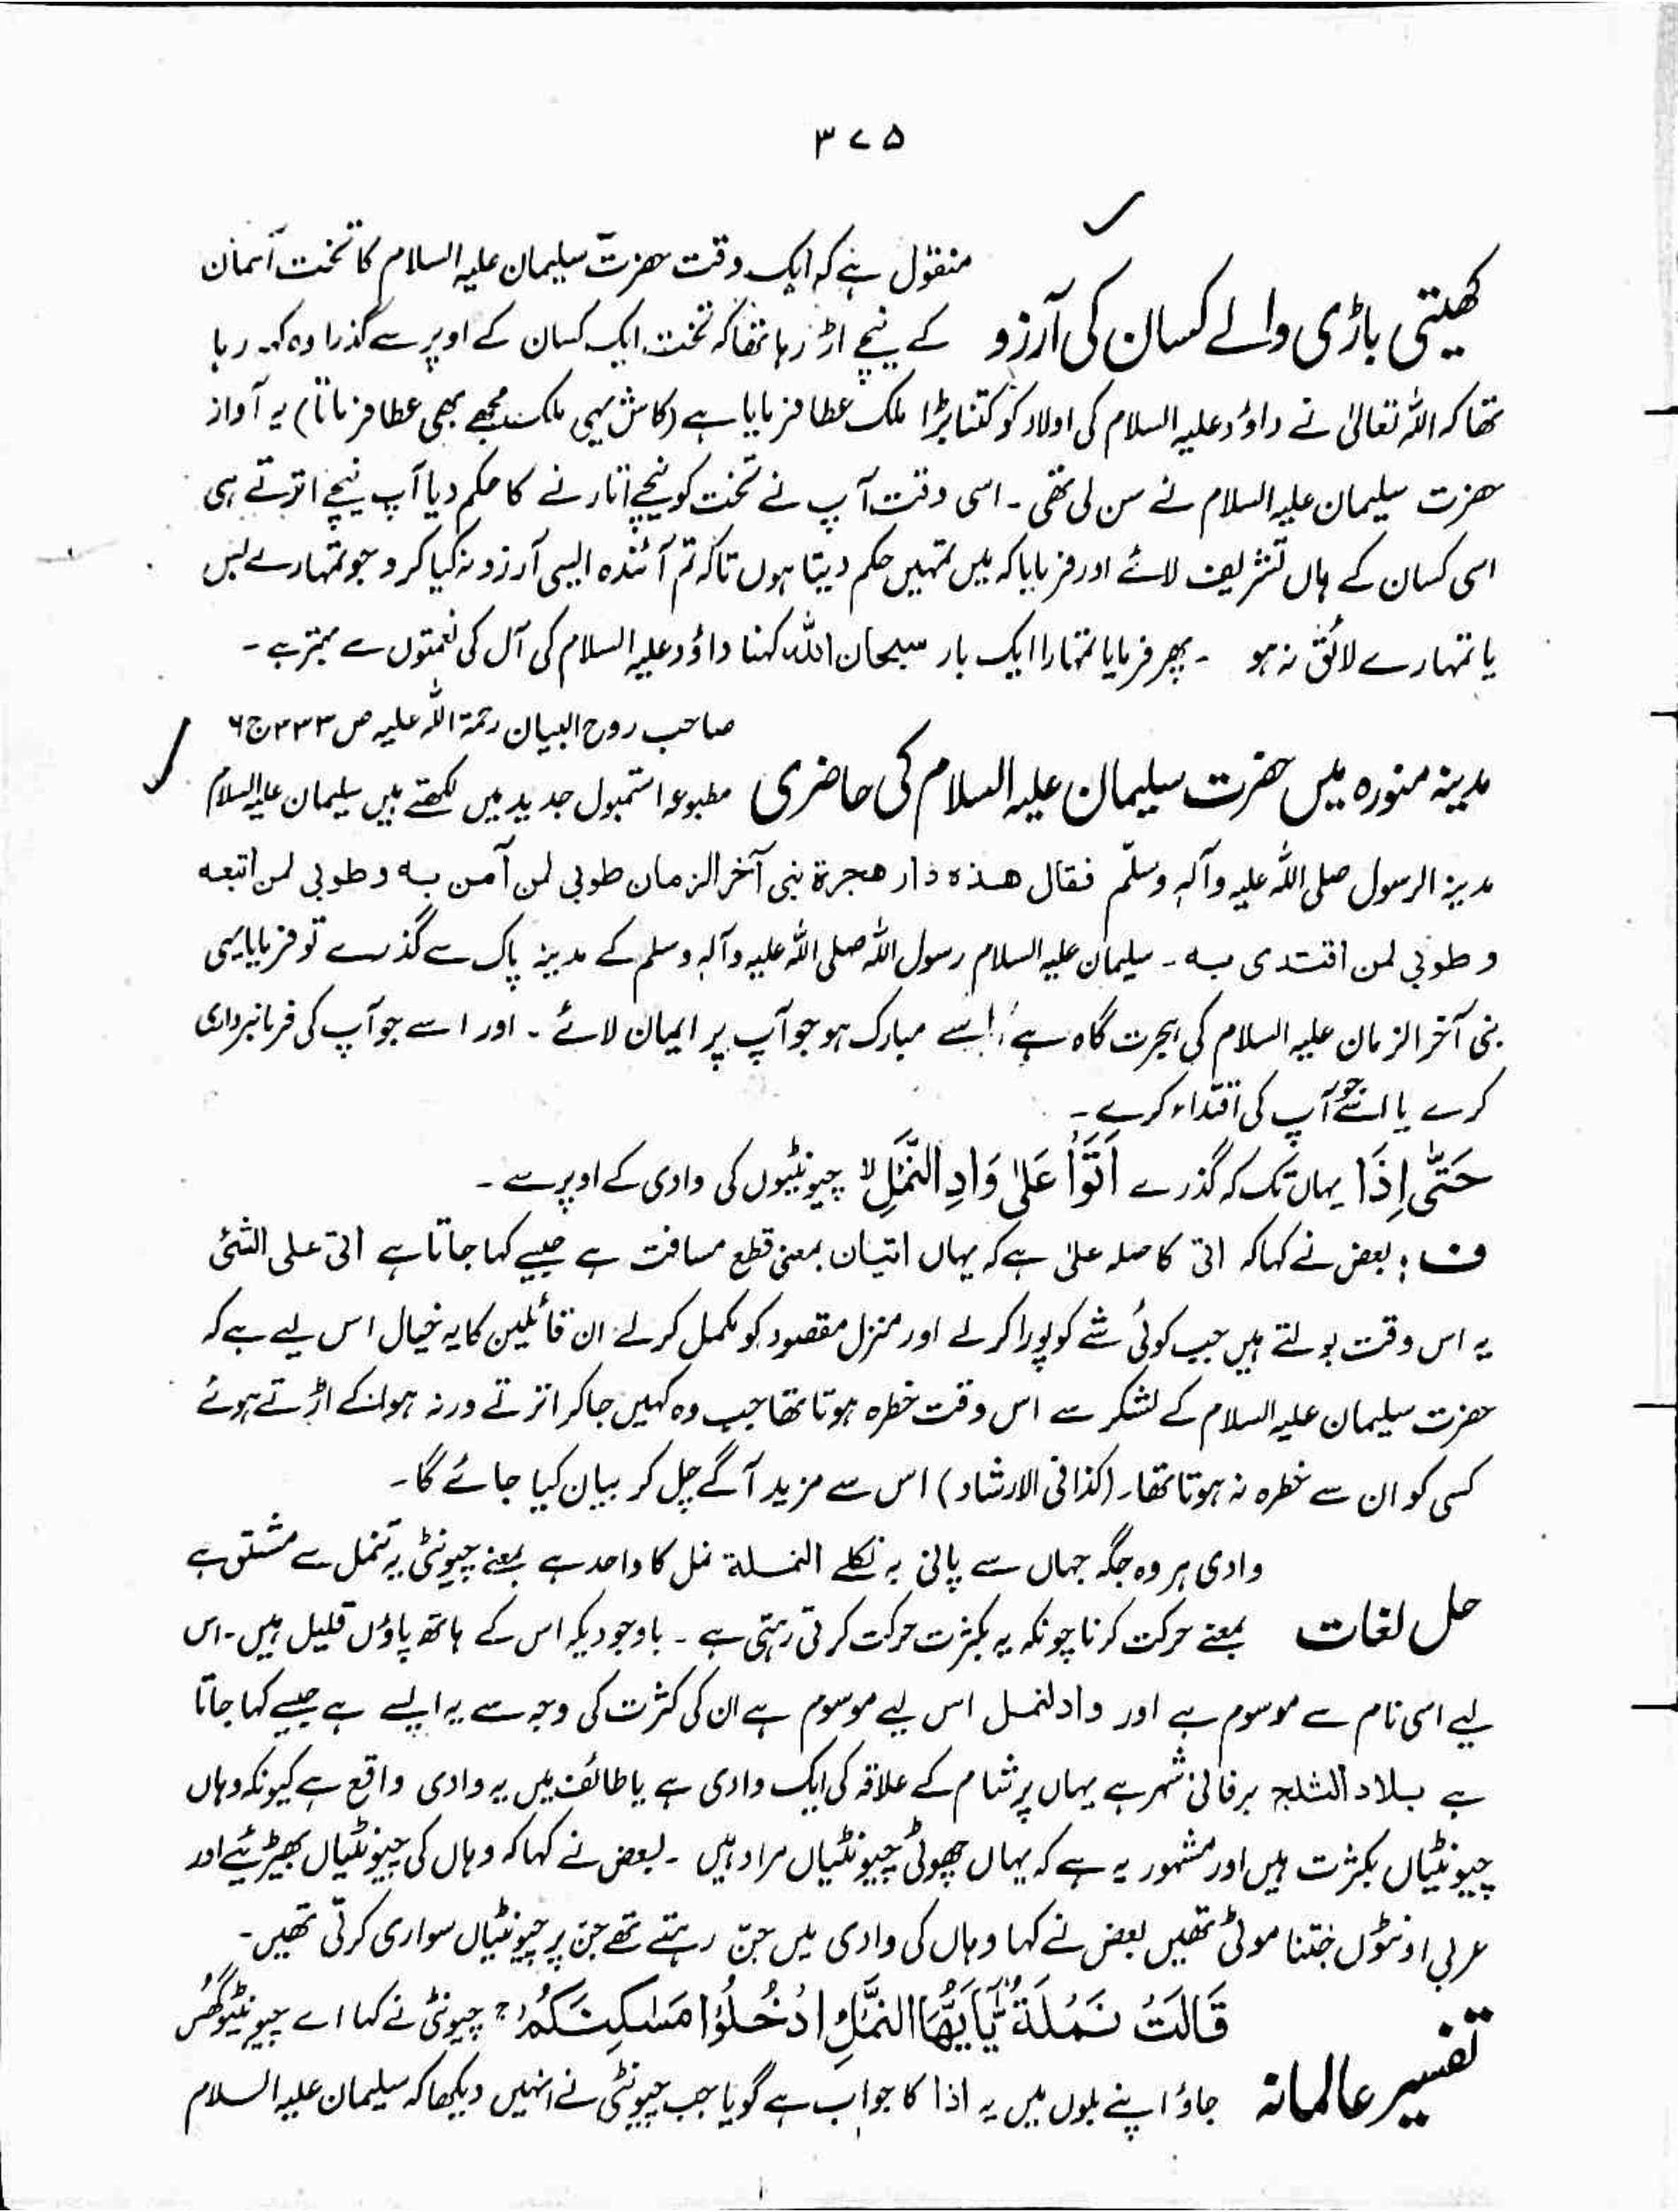 ۳۷۵
کھیتی باڑی والے کسان کی آرزو
منقول ہے کہ ایک وقت حضرت سلیمان علیہ السلام کا تخت آسمان
کے نیچے اڑ رہا تھا کہ تخت ایک کسان کے اوپر سے گذرا وہ کہہ رہا
تھا کہ اللہ تعالیٰ نے داؤد علیہ السلام کی اولاد کو کتنا بڑا ملک عطا فرمایا ہے (کاش یہی ملک مجھے بھی عطا فرماتا) یہ آواز
حضرت سلیمان علیہ السلام نے سن لی تھی ۔ اسی وقت آپ نے تخت کو نیچے اتارنے کا حکم دیا آپ نیچے اترتے ہی
اسی کسان کے ہاں تشریف لائے اور فرمایا کہ میں تمہیں حکم دیتا ہوں تاکہ تم آئندہ ایسی آرزو نہ کیا کرو جو تمہارے بس
یا تمہارے لائق نہ ہو ۔ پھر فرمایا تمہارا ایک بار سبحان اللہ کہنا داؤد علیہ السلام کی آل کی نعمتوں سے بہتر ہے ۔
مدینہ منورہ میں حضرت سلیمان علیہ السلام کی حاضری
صاحب روح البیان رحمۃ اللہ علیہ ص ۳۳۳ ج ۶
مطبوعہ استمبول جدید میں لکھتے ہیں سلیمان علیہ السلام
مدینۃ الرسول صلی اللہ علیہ وآلہٖ وسلّم فقال ھذہ دار ھجرۃ نبی آخر الزمان طوبی لمن آمن بہ و طوبی لمن اتبعہ
و طوبی لمن اقتدی بہ ۔ سلیمان علیہ السلام رسول اللہ صلی اللہ علیہ وآلہٖ وسلم کے مدینہ پاک سے گذرے تو فرمایا یہی
نبی آخر الزمان علیہ السلام کی ہجرت گاہ ہے، اسے مبارک ہو جو آپ پر ایمان لائے ۔ اور اسے جو آپ کی فرمانبرداری
کرے یا اسے جو آپ کی اقتداء کرے ۔
حَتّٰی اِذَا یہاں تک کہ گذرے اَتَوْا عَلٰی وَادِ النَّمْلِ لا چیونٹیوں کی وادی کے اوپر سے ۔
ف : بعض نے کہا کہ اتی کا صلہ علیٰ ہے کہ یہاں اتیان بمعنی قطع مسافت ہے جیسے کہا جاتا ہے اتی علی الشئ
یہ اس وقت بولتے ہیں جب کوئی شے کو پورا کر لے اور منزل مقصود کو مکمل کر لے ان قائلین کا یہ خیال اس لیے ہے کہ
حضرت سلیمان علیہ السلام کے لشکر سے اس وقت خطرہ ہوتا تھا جب وہ کہیں جا کر اترتے ورنہ ہوا کے اڑتے ہوئے
کسی کو ان سے خطرہ نہ ہوتا تھا ۔ (کذا فی الارشاد) اس سے مزید آگے چل کر بیان کیا جائے گا ۔
حل لغات
وادی ہر وہ جگہ جہاں سے پانی بہ نکلے النملۃ نمل کا واحد ہے بمعنے چیونٹی یہ تنمل سے مشتق ہے
بمعنے حرکت کرنا چونکہ یہ بکثرت حرکت کرتی رہتی ہے ۔ باوجودیکہ اس کے ہاتھ پاؤں قلیل ہیں ۔ اس
لیے اسی نام سے موسوم ہے اور واد لنمل اس لیے موسوم ہے ان کی کثرت کی وجہ سے یہ ایسے ہے جیسے کہا جاتا
ہے بلاد الثلج برفانی شہر ہے یہاں پر شام کے علاقہ کی ایک وادی ہے یا طائف میں یہ وادی واقع ہے کیونکہ وہاں
چیونٹیاں بکثرت ہیں اور مشہور یہ ہے کہ یہاں چھوٹی چیونٹیاں مراد ہیں ۔ بعض نے کہا کہ وہاں کی چیونٹیاں بھیڑیئے اور
عربی اونٹوں جتنا موٹی تھیں بعض نے کہا وہاں کی وادی میں جنّ رہتے تھے جن پر چیونٹیاں سواری کرتی تھیں ۔
تفسیر عالمانہ
قَالَتْ نَمْلَۃٌ یّٰٓاَیُّھَا النَّمْلُ ادْخُلُوْا مَسٰکِنَکُمْ ج چیونٹی نے کہا اے چیونٹیو گھس
جاؤ اپنے بلوں میں یہ اذا کا جواب ہے گویا جب چیونٹی نے انہیں دیکھا کہ سلیمان علیہ السلام